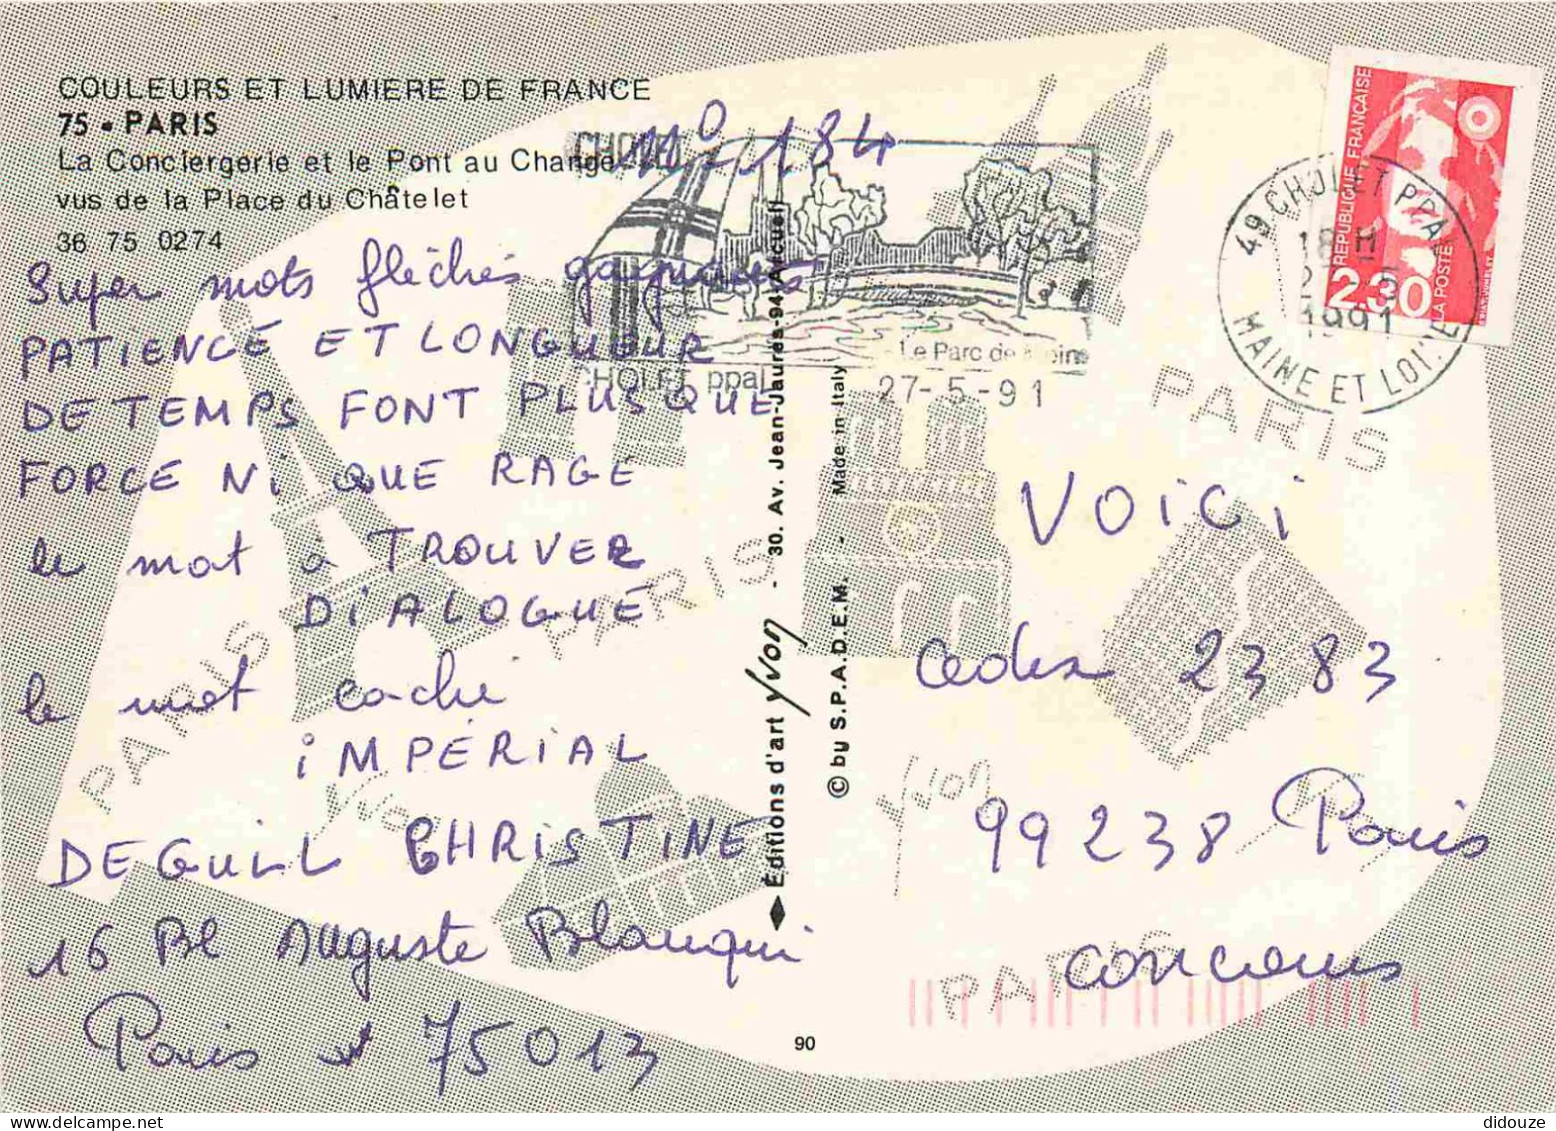 COULEURS ET LUMIERE DE FRANCE
75 - PARIS
La Conciergerie et le Pont au Change
vus de la Place du Châtelet
36 75 0274
n° 184
Super mots fléchés gagnants
PATIENCE ET LONGUEUR
DE TEMPS FONT PLUS QUE
FORCE Ni QUE RAGE
le mot à TROUVER
DiALOGUE
le mot cache
iMPERiAL
DEGUiLL CHRiSTINE
16 Bl Auguste Blanqui
Paris 75013
CHOLET
Le Parc de Moine
CHOLET ppal
27-5-91
49 CHOLET PPAL
18 H
1991
MAINE ET LOIRE
REPUBLIQUE FRANÇAISE
2,30
LA POSTE
Éditions d'art Yvon - 30. Av. Jean-Jaurès-94-Arcueil
© by S.P.A.D.E.M. - Made in Italy
PARIS
PARIS
PARIS
PARIS
Yvon
Yvon
VOiCi
Cedex 2383
99238 Paris
concours
90
didouze